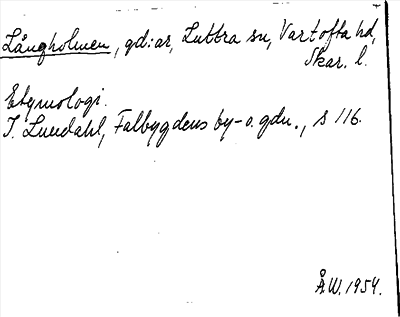 Långholmen, gd:ar, Luttra sn, Vartofta hd,
Skar. l.
Etymologi.
I. Lundahl, Falbygdens by- o. gdn., s 116.
ÅW. 1954.